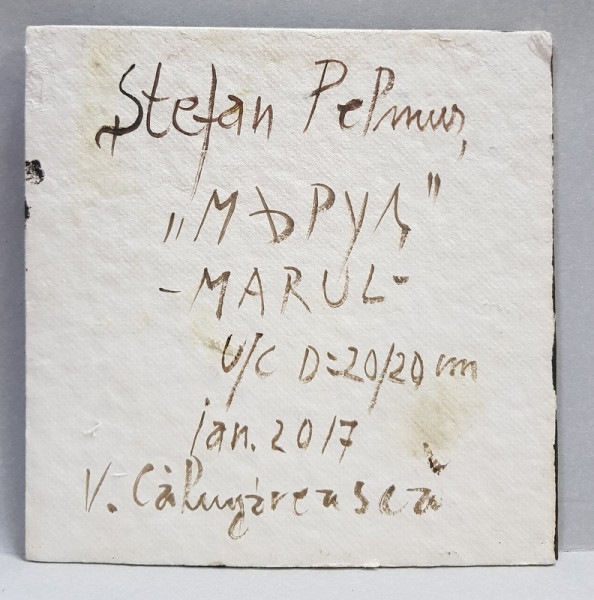 Ștefan Pelmuș
„МЪРУЛ"
-MARUL-
U/C D=20/20 cm
jan. 2017
V. Călugărească